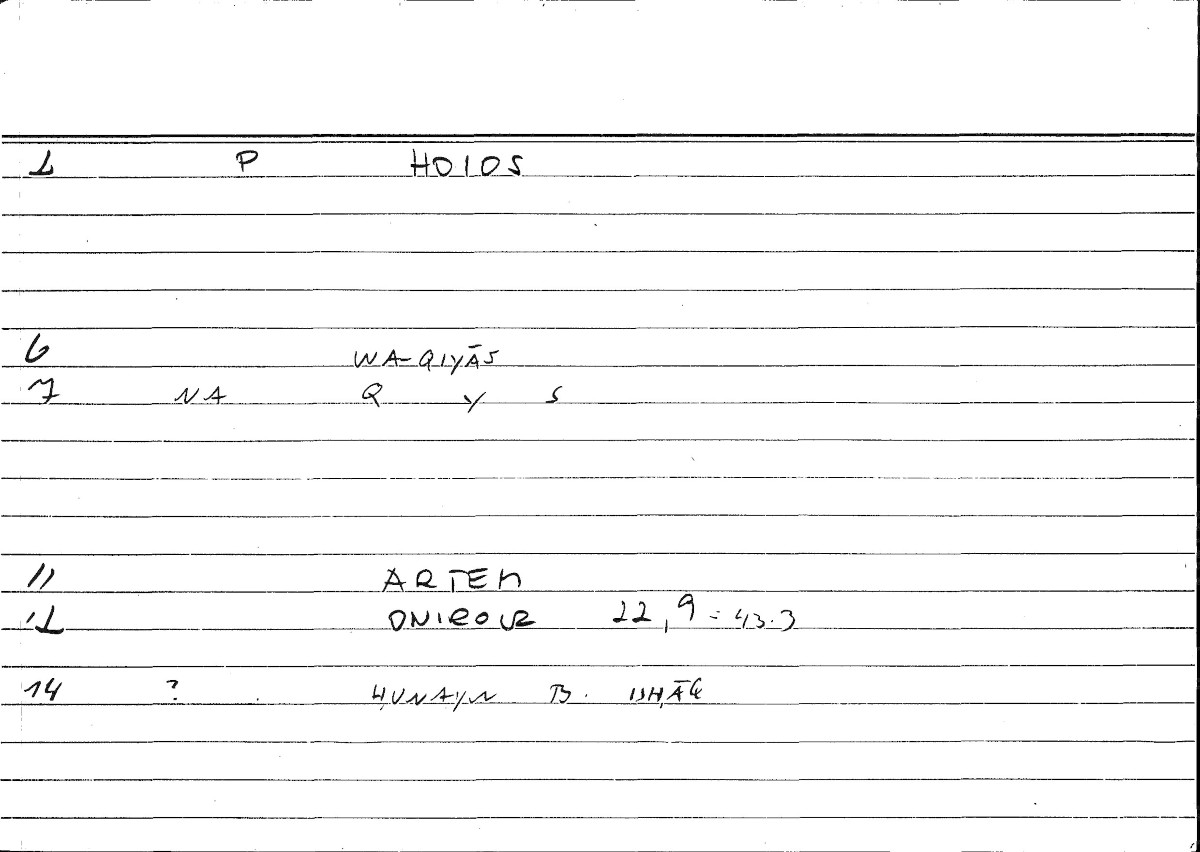 2 P HOIOS
6 WA-QIYĀS
7 NA Q Y S
11 ARTEM
12 ONIROCR 22,9 = 43.3
14 ? ḤUNAYN B. ISḤĀQ